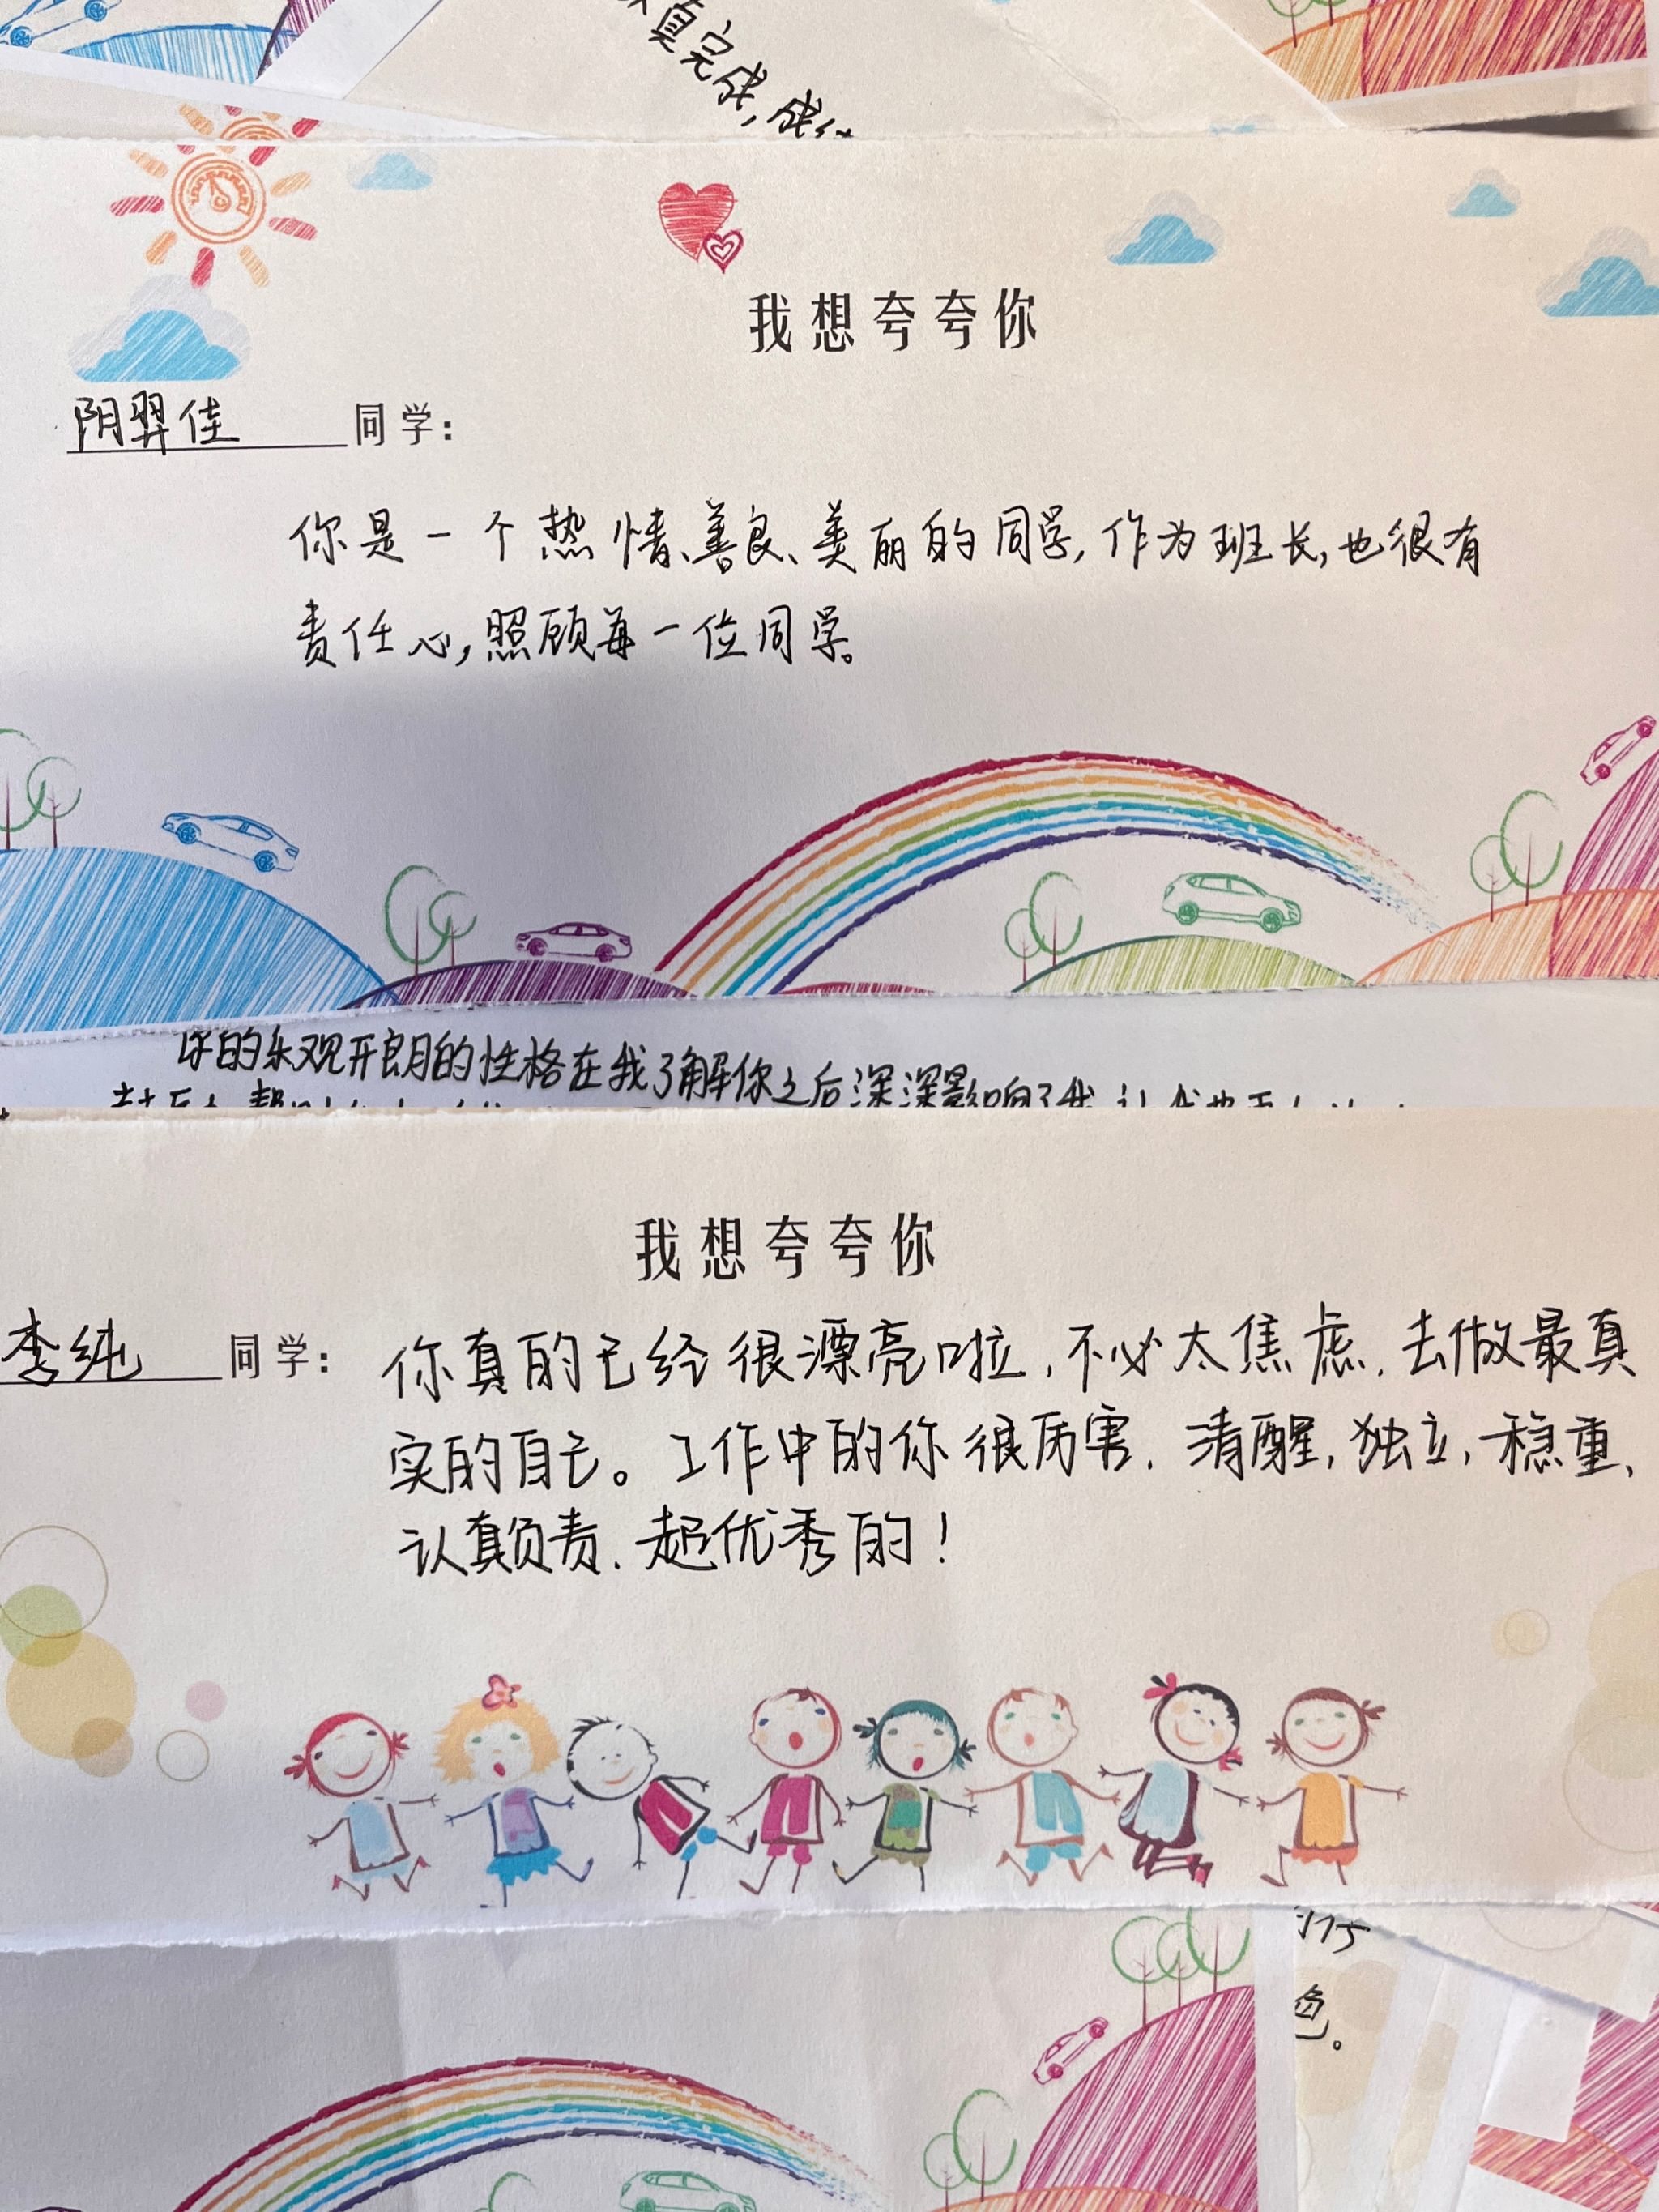 真完成,成
我想夸夸你
阴羿佳 同学:
你是一个热情、善良、美丽的同学,作为班长,也很有
责任心,照顾每一位同学。
你的乐观开朗的性格在我了解你之后深深影响了我
我想夸夸你
李纯 同学:
你真的已经很漂亮啦,不必太焦虑,去做最真
实的自己。工作中的你很厉害,清醒,独立,稳重,
认真负责,超优秀的!
的巧
色。